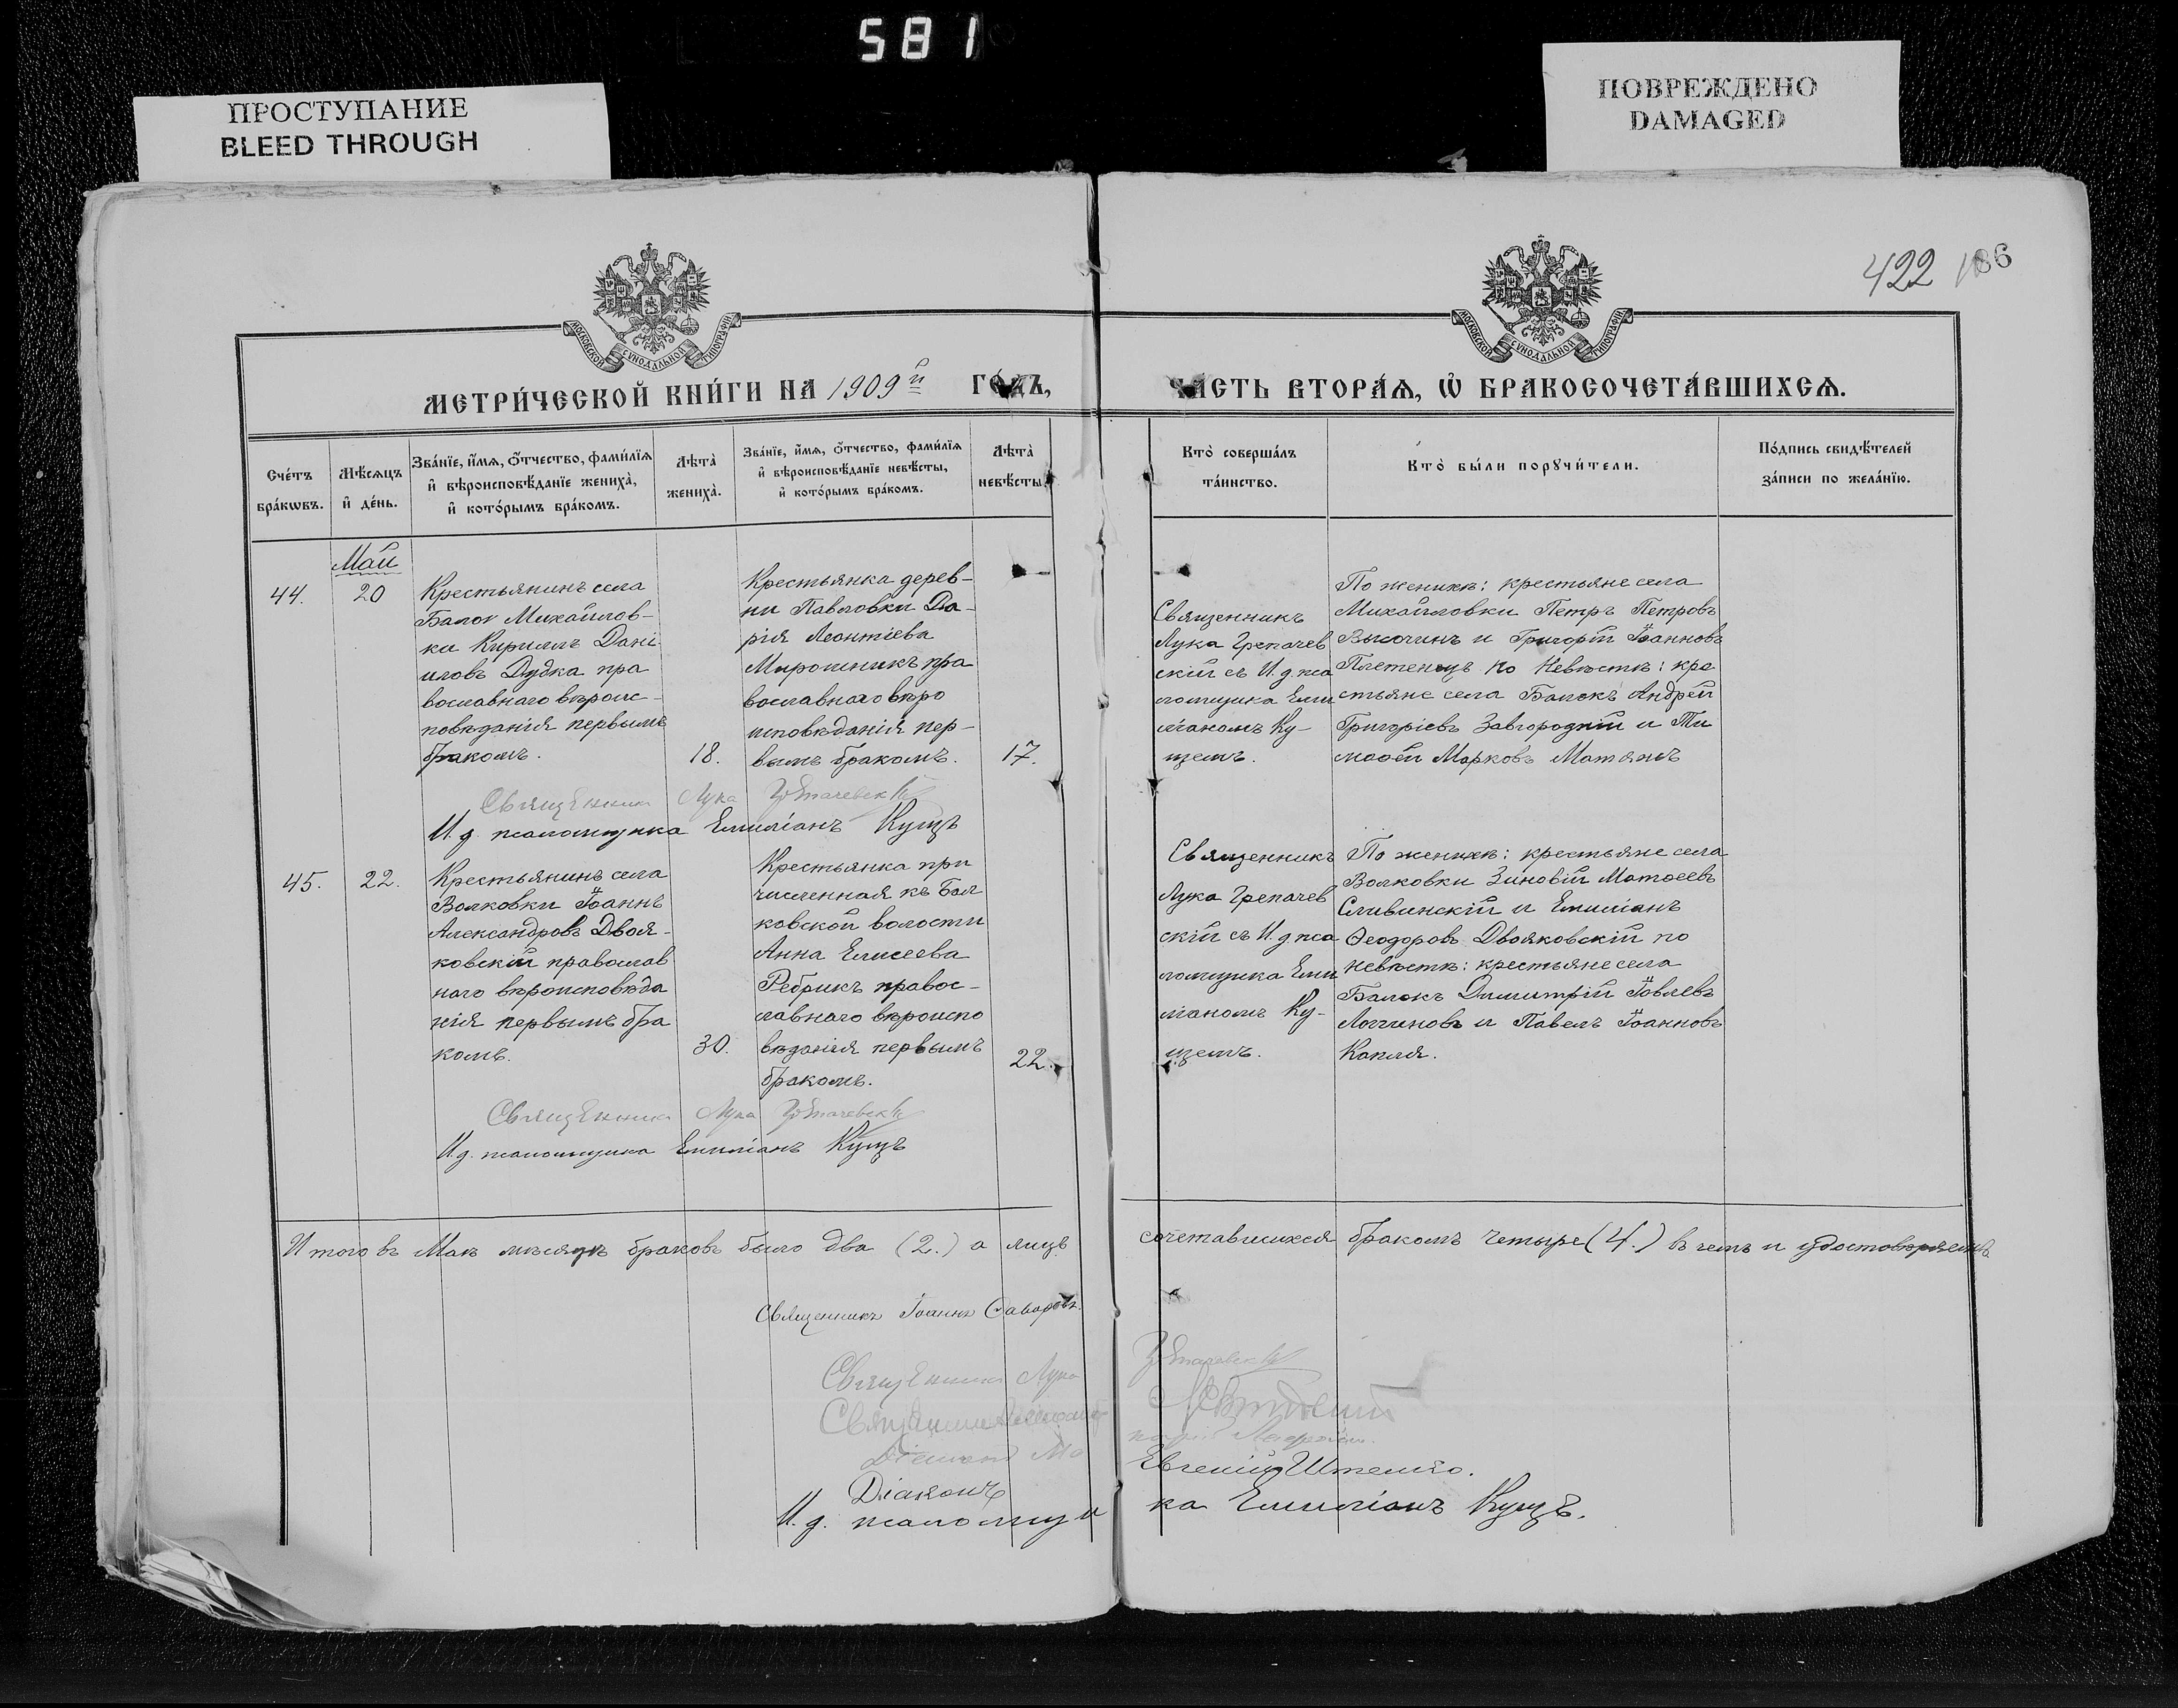 581
ПРОСТУПАНИЕ
BLEED THROUGH
ПОВРЕЖДЕНО
DAMAGED
422
186
МОСКОВСКОЙ СУНОДАЛЬНОЙ ТИПОГРАФІИ
МОСКОВСКОЙ СУНОДАЛЬНОЙ ТИПОГРАФІИ
МЕТРИ́ЧЕСКОЙ КНИ́ГИ НА 1909й ГО́ДЪ,
ЧА́СТЬ ВТОРА́Ѧ, Ѽ БРАКОСОЧЕТА́ВШИХСѦ.
Сче́тъ бра́кѡвъ.
Мѣ́сѧцъ и҆ де́нь.
Зва́нїе, и҆́мѧ, ѻ҆́тчество, фами́лїѧ и҆ вѣроисповѣ́данїе жениха̀, и҆ кото́рымъ бра́комъ.
Лѣта̀ жениха̀.
Зва́нїе, и҆́мѧ, ѻ҆́тчество, фами́лїѧ и҆ вѣроисповѣ́данїе невѣ́сты, и҆ кото́рымъ бра́комъ.
Лѣта̀ невѣ́сты.
Кто̀ соверша́лъ та́инство.
Кто̀ бы́ли порꙋчи́тели.
По́дпись свидѣ́телей за́писи по жела́нїю.
Май
44.
20
Крестьянинъ села
Балок Михайлов-
ки Кириллъ Дані
иловъ Дудка пра
вославнаго вѣроис-
повѣданія первымъ
бракомъ.
18.
Крестьянка дерев-
ни Павловки Да-
рія Леонтіева
Мирошникъ пра
вославнаго вѣро
исповѣданія пер-
вымъ бракомъ.
17.
Священникъ
Лука
скій съ И. д. пса
ломщика Еми
ліаномъ Ку-
щемъ.
По женихѣ: крестьяне села
Михайловки Петръ Петровъ
Височинъ и Григорій Іоанновъ
Плетенецъ по невѣстѣ: кре
стьяне села Балокъ Андрей
Григоріевъ Завгородній и Ти
моѳей Марковъ
Священникъ Лука
И. д. псаломщика Емиліанъ Кущъ
45.
22.
Крестьянинъ села
Волковки Іоаннъ
Александровъ Двоя-
ковскій православ
наго вѣроисповѣда
нія первымъ бра
комъ.
30.
Крестьянка при
численная къ Бал
ковской волости
Анна Елисеева
Ребрикъ правос-
лавнаго вѣроиспо
вѣданія первымъ
бракомъ.
22.
Священникъ
Лука
скій съ И. д. пса
ломщика Еми
ліаномъ Ку-
щемъ.
По женихѣ: крестьяне села
Волковки Зиновій Матѳеевъ
Сливинскій и Емиліанъ
Ѳеодоровъ Двояковскій по
невѣстѣ: крестьяне села
Балокъ Димитрій Іовлевъ
Логгиновъ и Павелъ Іоанновъ
Капля.
Священникъ Лука
И. д. псаломщика Емиліанъ Кущъ
Итого въ Маѣ мѣсяцѣ браковъ было два (2.) а лицъ сочетавшихся бракомъ четыре (4.) въ чемъ и удостовѣряемъ
Священникъ Іоаннъ
Священникъ Лука
Священникъ
Діаконъ
Діаконъ Евгеній
И. д. псаломщика Емиліанъ Кущъ.